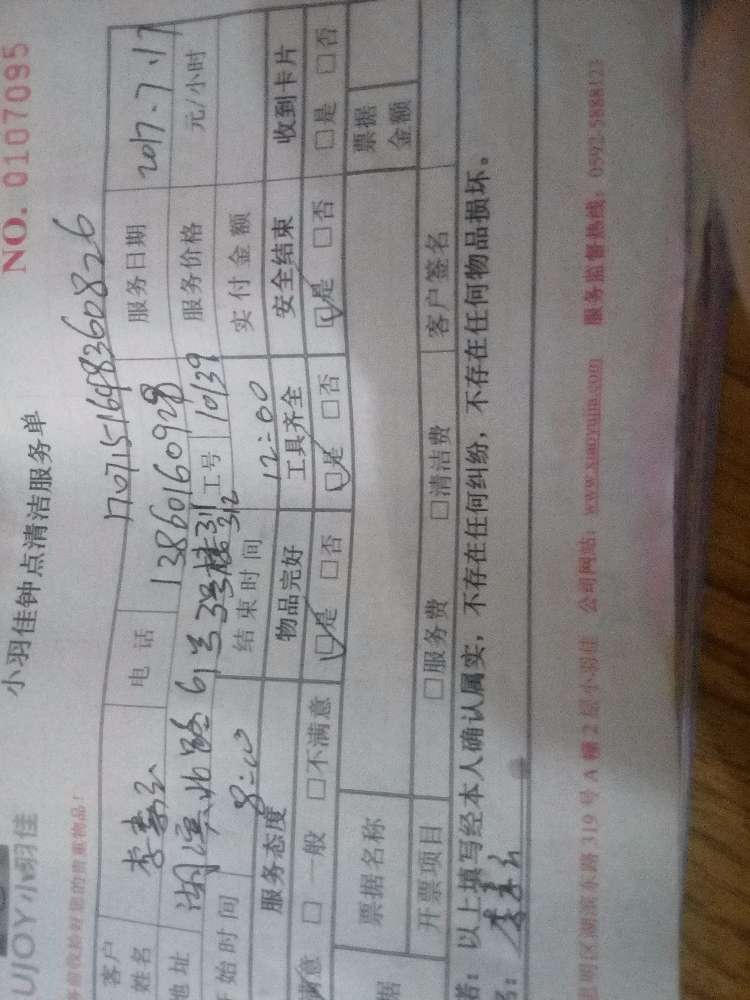 UJOY小羽佳
小羽佳钟点清洁服务单
NO. 0107095
务必收拾好您的贵重物品!
客户姓名 电话 13860160928 服务日期 2017.7.17
地址 湖滨北路61号 工号 10139 服务价格 元/小时
开始时间 8:00 结束时间 12:00 实付金额
服务态度 物品完好 工具齐全 安全结束 收到卡片
满意 □一般 □不满意 □是 □否 □是 □否 □是 □否 □是 □否
据 票据名称 票据金额
开票项目 □服务费 □清洁费 客户签名
以上填写经本人确认属实,不存在任何纠纷,不存在任何物品损坏。
明区湖滨东路319号A幢2层小羽佳 公司网站:www.xiaoyujia.com 服务监督热线:0592-5888123